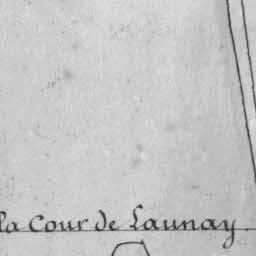 la Cour de Launay.